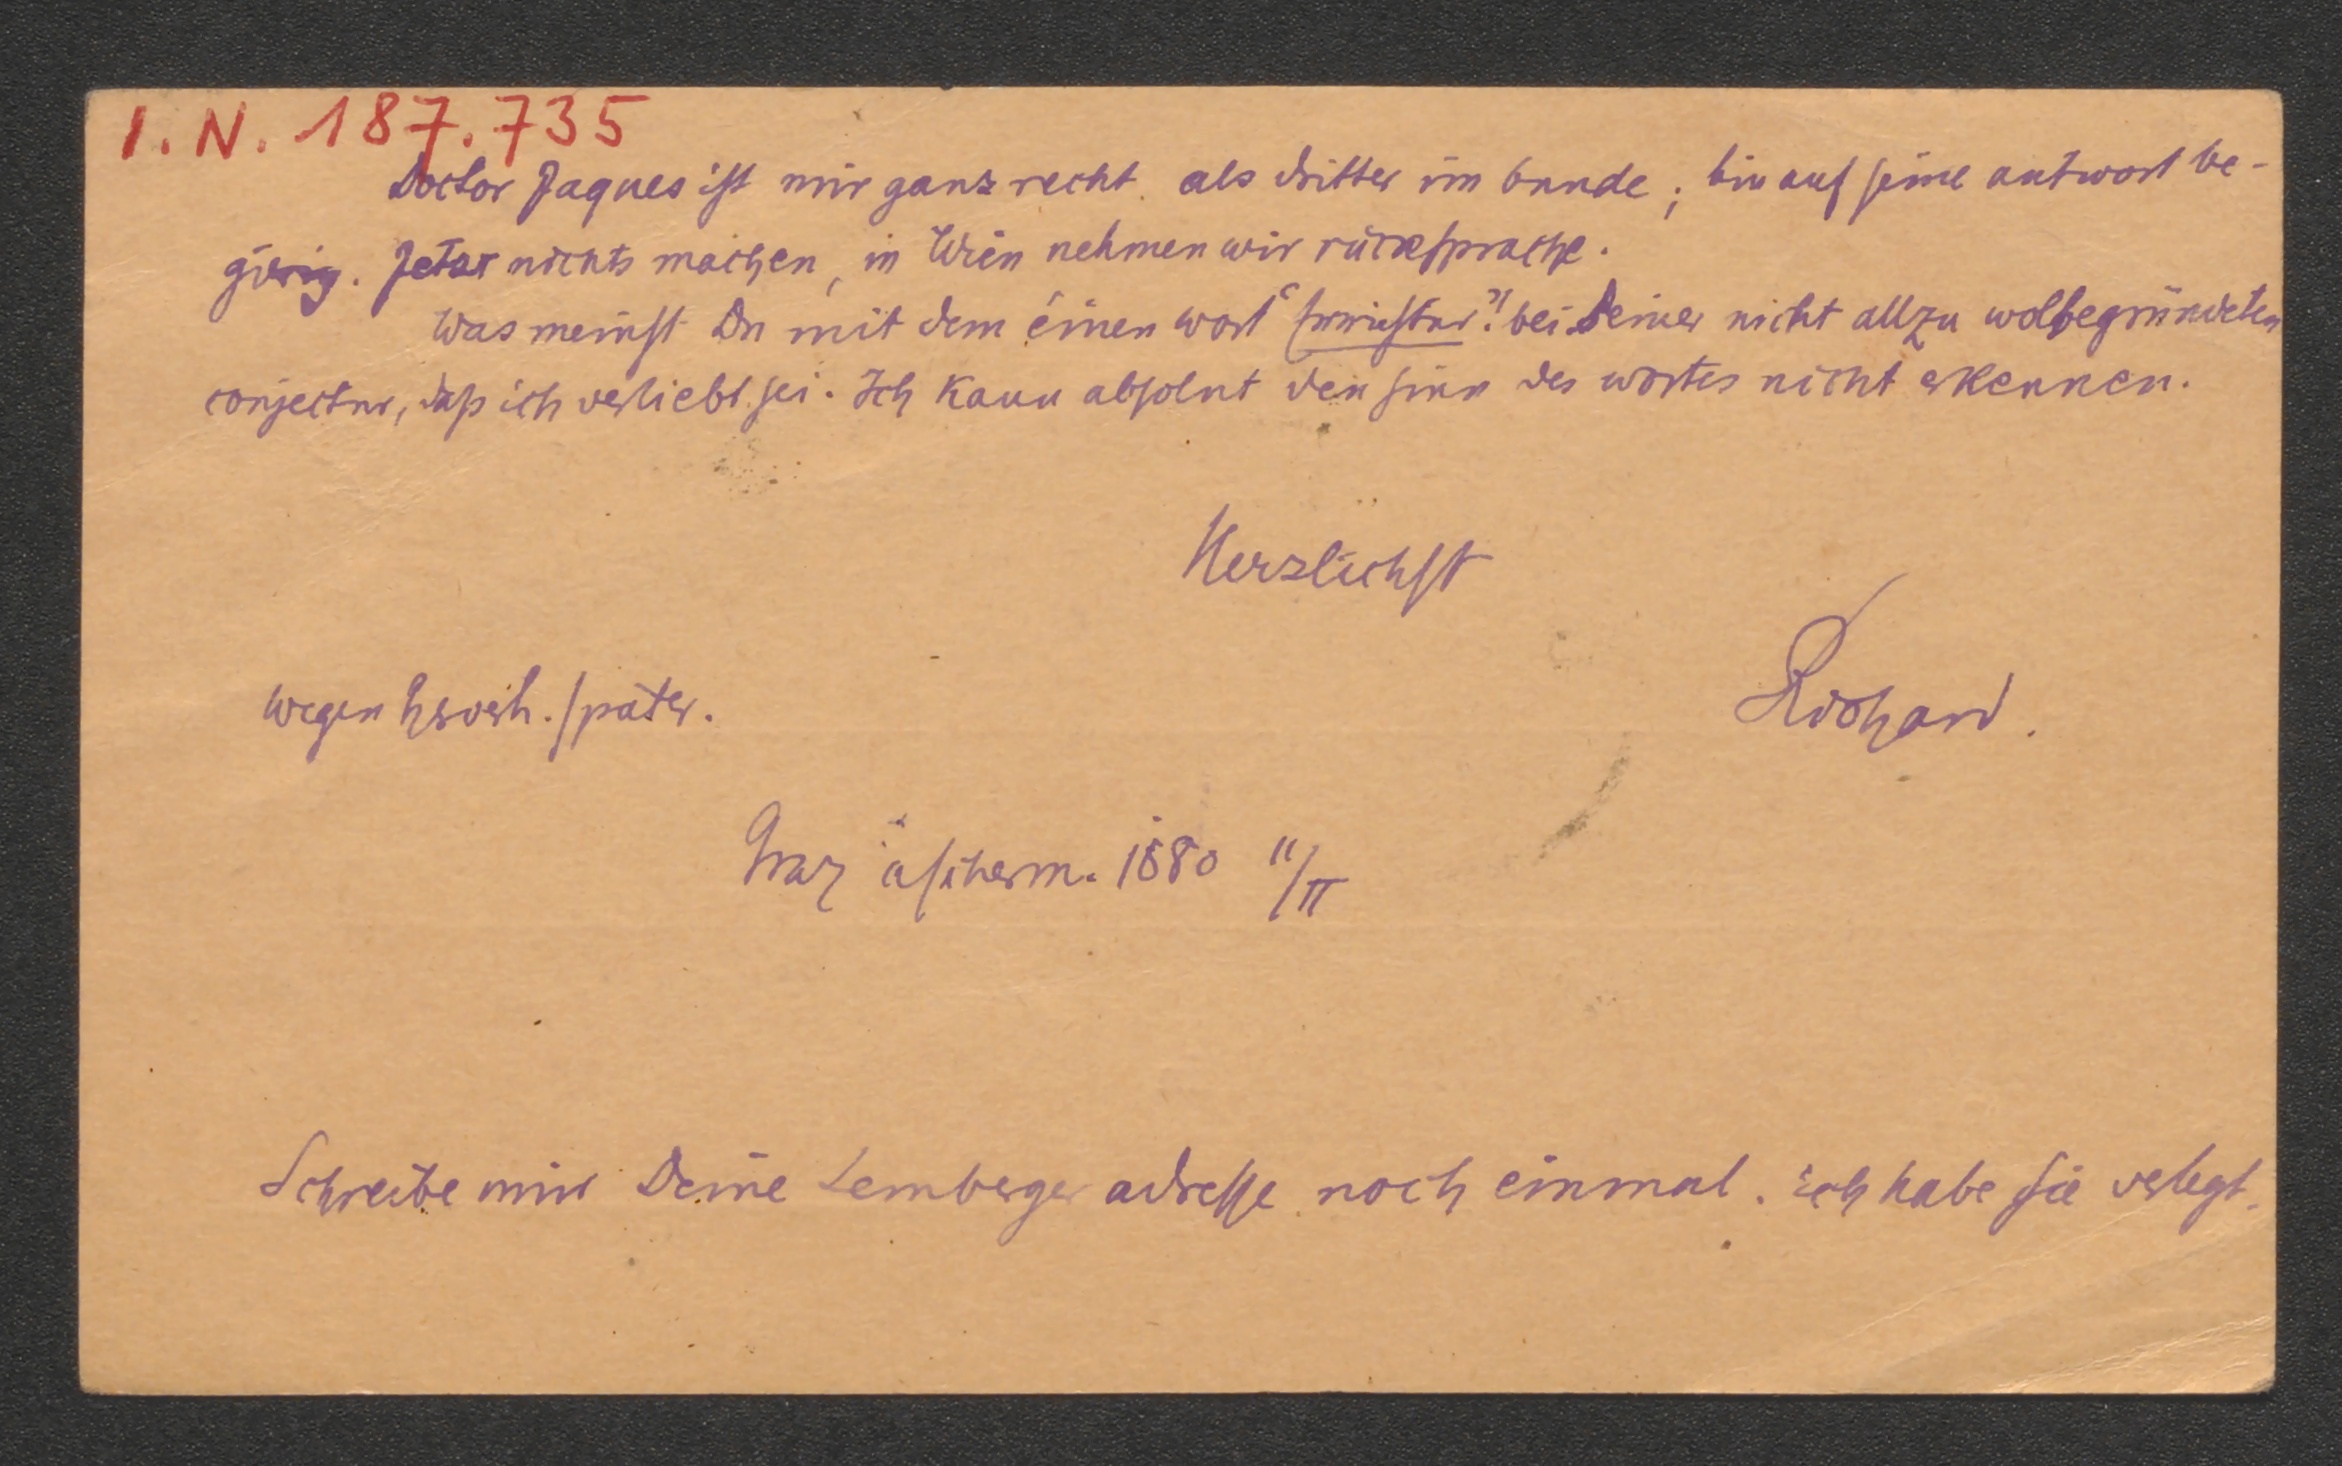 I. N. 187.735
Doctor Jaques ist mir ganz recht als dritter im bunde; bin auf seine antwort be-
gierig. Jetzt nichts machen, in Wien nehmen wir rücksprache.
Was meinst Du mit dem éinen wort bei Deiner nicht allzu wolbegründeten
conjectur, daß ich verliebt sei. Ich kann absolut den sinn des wortes nicht erkennen.
Herzlichst
Richard.
wegen später.
Graz ascherm. 1880 11/II
Schreibe mir Deine Lemberger adresse noch einmal. ich habe sie verlegt.